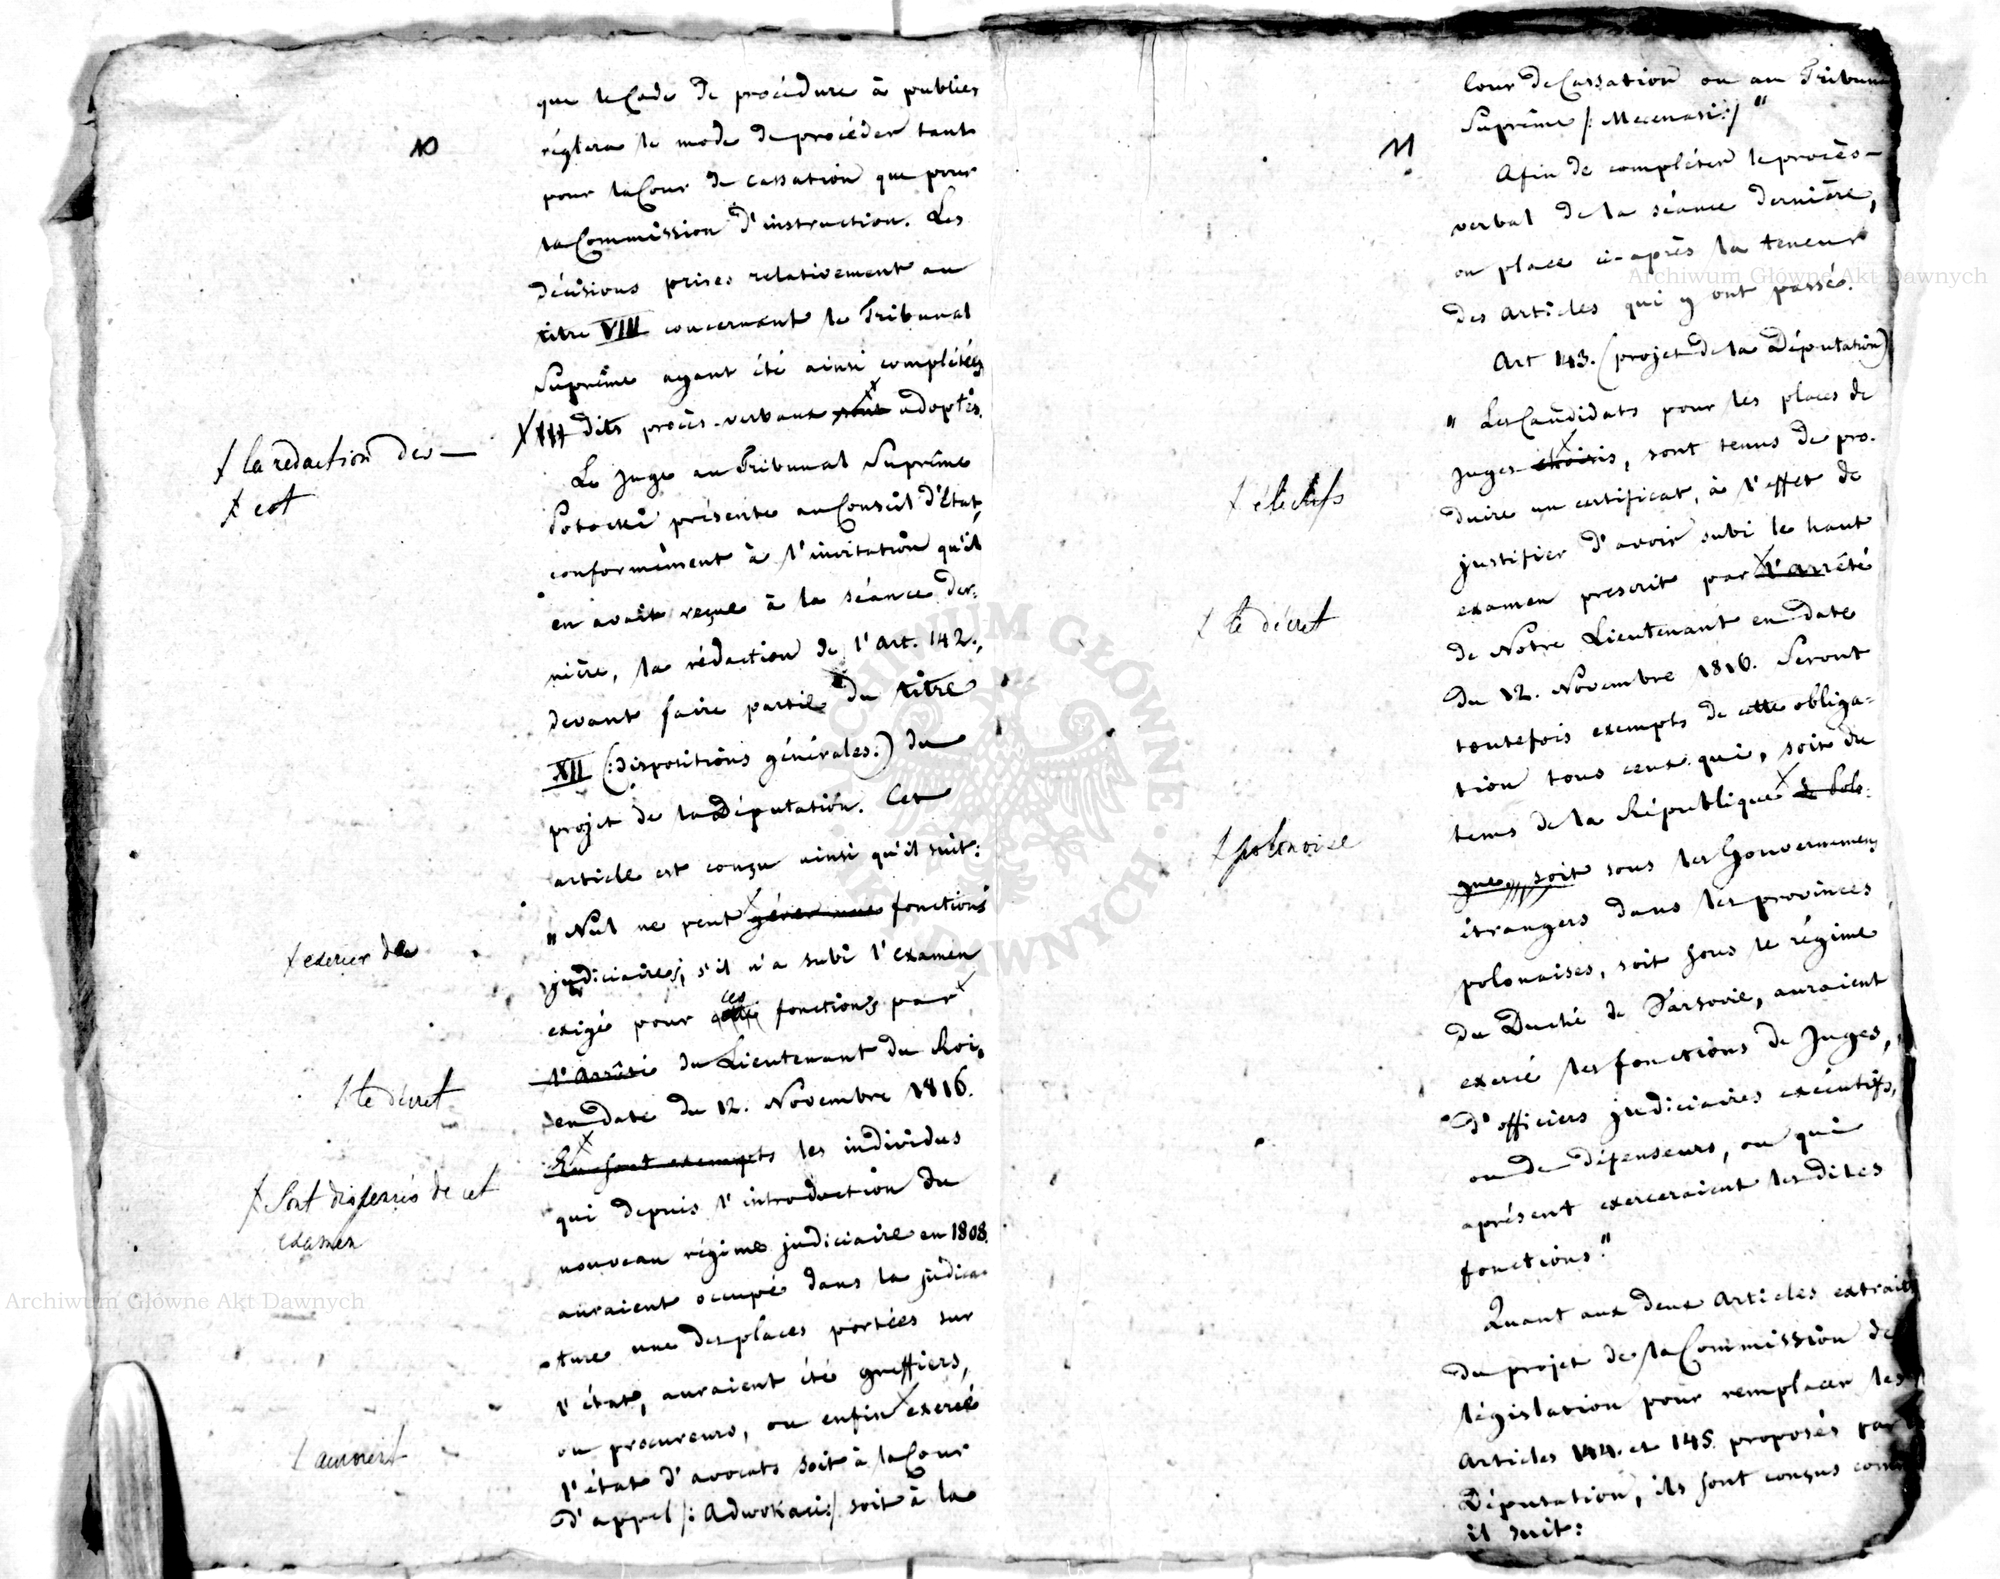 10
que le Code de procédure à publier
réglera le mode de procéder tant
pour la Cour de cassation que pour
la Commission d'instruction. Les
décisions prises relativement au
titre VIII concernant le Tribunal
Suprême ayant été ainsi complétées
dits procès-verbaux sont adoptés.
+ la rédaction des
+ est
Le Juge au Tribunal Suprême
Potocki présente au Conseil d'Etat,
conformément à l'invitation qu'il
en avait reçue à la séance der:
nière, la rédaction de l'art. 142.,
devant faire partie du titre
XII (:dispositions générales:) du
projet de la Députation. Cet
article est conçu ainsi qu'il suit:
"Nul ne peut gérer une fonctions
+ exercer de
judiciaires, s'il n'a subi l'examen
exigé pour ces fonctions par
l'Arrêté du Lieutenant du Roi,
+ le décret
en date du 12. Novembre 1816.
En sont exempts les individus
+ Sont dispensés de cet
examen
qui depuis l'introduction du
nouveau régime judiciaire en 1808.
auraient occupé dans la judica-
ture une des places portées sur
l'état, auraient été greffiers,
ou procureurs, ou enfin exercé
+ auroient
l'état d'avocats soit à la Cour
d'appel /: Adwokaci:/ soit à la
11
Cour de Cassation ou au Tribunal
Suprême /: Mecenasi:/"
Afin de compléter le procès-
verbal de la séance dernière,
on place ci-après la teneur
des articles qui y ont passé.
Art 143. (projet de la Députation)
" Les Candidats pour les places de
Juges choisis, sont tenus de pro-
+ électifs
duire un certificat, à l'effet de
justifier d'avoir subi le haut
examen prescrit par l'arrêté
+ le décret
de Notre Lieutenant en date
du 12. Novembre 1816. Seront
toutefois exempts de cette obliga=
tion tous ceux qui, soit du
tems de la République de Polo-
+ polonoise
gne, soit sous les Gouvernemens
étrangers dans les provinces
polonaises, soit sous le régime
du Duché de Varsovie, auraient
exercé les fonctions de Juges,
d'officiers judiciaires exécutifs,
ou de défenseurs, ou qui
aprésent exerceraient les dites
fonctions."
Quant aux deux articles extraits
du projet de la Commission de
législation pour remplacer les
articles 144. et 145. proposés par la
Députation, ils sont conçus comme
il suit:
Archiwum Główne Akt Dawnych
Archiwum Główne Akt Dawnych
ARCHIWUM GŁÓWNE AKT DAWNYCH